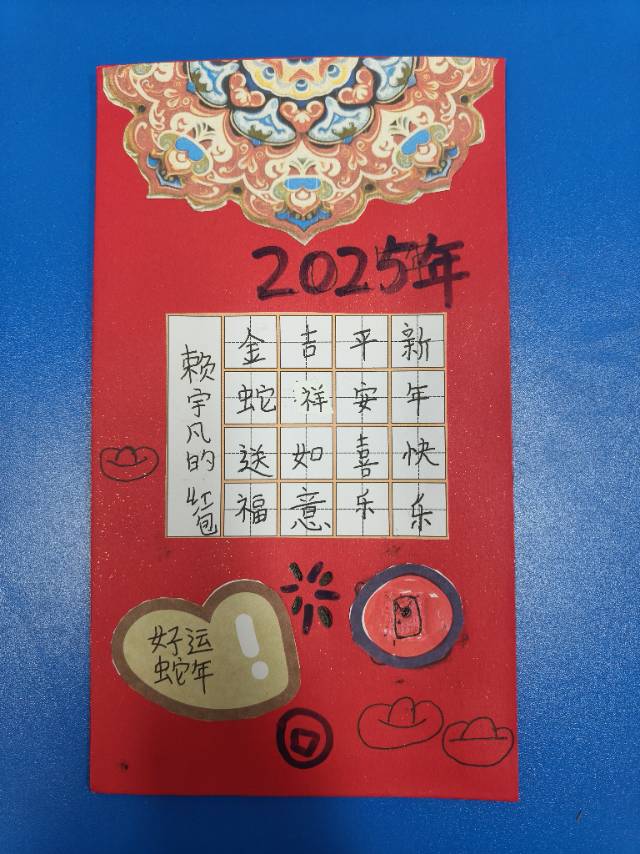 2025年
新年快乐
平安喜乐
吉祥如意
金蛇送福
赖宇凡的红包
好运
蛇年